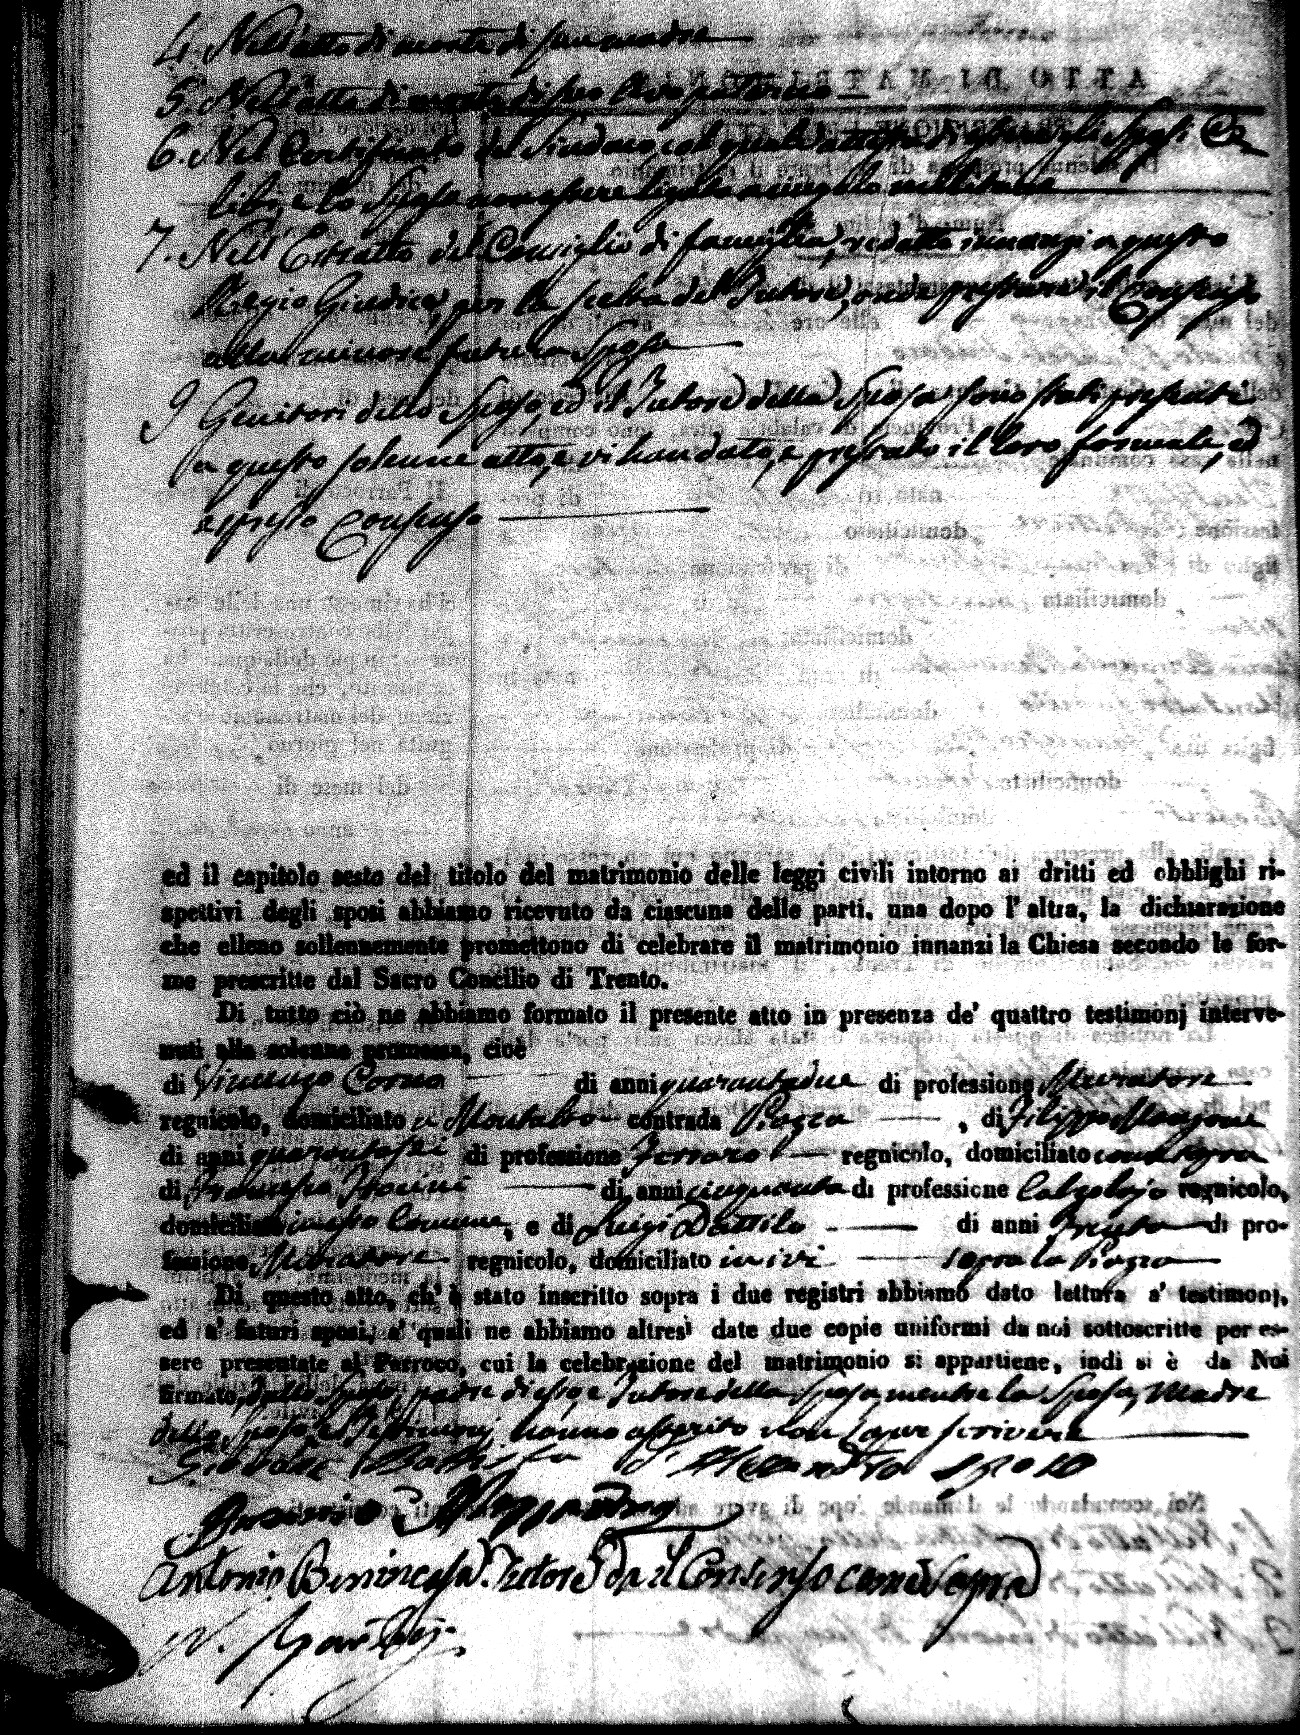 4. Nell'atto di morte di sua madre
5. Nell'atto di morte di suo Avo paterno
6. Nel Certificato del Sindaco col quale attesta di essere gli Sposi Ce
libi, e lo Sposo non essere ligato a vincolo militare
7. Nell'Estratto del Consiglio di famiglia, redatto innanzi a questo
Regio Giudice, per la scelta del Tutore, onde prestare il Consenso
alla minore futura Sposa
I Genitori dello Sposo, ed il Tutore della Sposa sono stati presenti
a questo solenne atto, e vi han dato, e prestato il loro formale, ed
espresso Consenso
ed il capitolo sesto del titolo del matrimonio delle leggi civili intorno ai dritti ed obblighi ri-
spettivi degli sposi abbiamo ricevuto da ciascuna delle parti, una dopo l'altra, la dichiarazione
che elleno sollennemente promettono di celebrare il matrimonio innanzi la Chiesa secondo le for-
me prescritte dal Sacro Concilio di Trento.
Di tutto ciò ne abbiamo formato il presente atto in presenza de' quattro testimonj interve-
nuti alla solenne promessa, cioè
di Vincenzo Corno di anni quarantadue di professione Muratore
regnicolo, domiciliato in Montalto contrada Piazza, di Filippo Mangone
di anni quarantasei di professione Ferraro regnicolo, domiciliato come sopra
di Francesco di anni cinquanta di professione Calzolajo regnicolo,
domiciliato in esso Comune, e di Luigi Dattilo di anni trenta di pro-
fessione Muratore regnicolo, domiciliato in ivi sopra la Piazza
Di questo atto, ch'è stato inscritto sopra i due registri abbiamo dato lettura a' testimonj,
ed a' futuri sposi, a' quali ne abbiamo altresì date due copie uniformi da noi sottoscritte per es-
sere presentate al Parroco, cui la celebrazione del matrimonio si appartiene, indi si è da Noi
firmato, dallo Sposo, padre di esso e Tutore della Sposa, mentre la Sposa, Madre
dello Sposo, e Testimonj hanno asserito non saper scrivere
Giovane Battista D'Alessandro sposo
Antonio D'Alessandro
Antonio Benincasa Tutore dà il Consenso come sopra